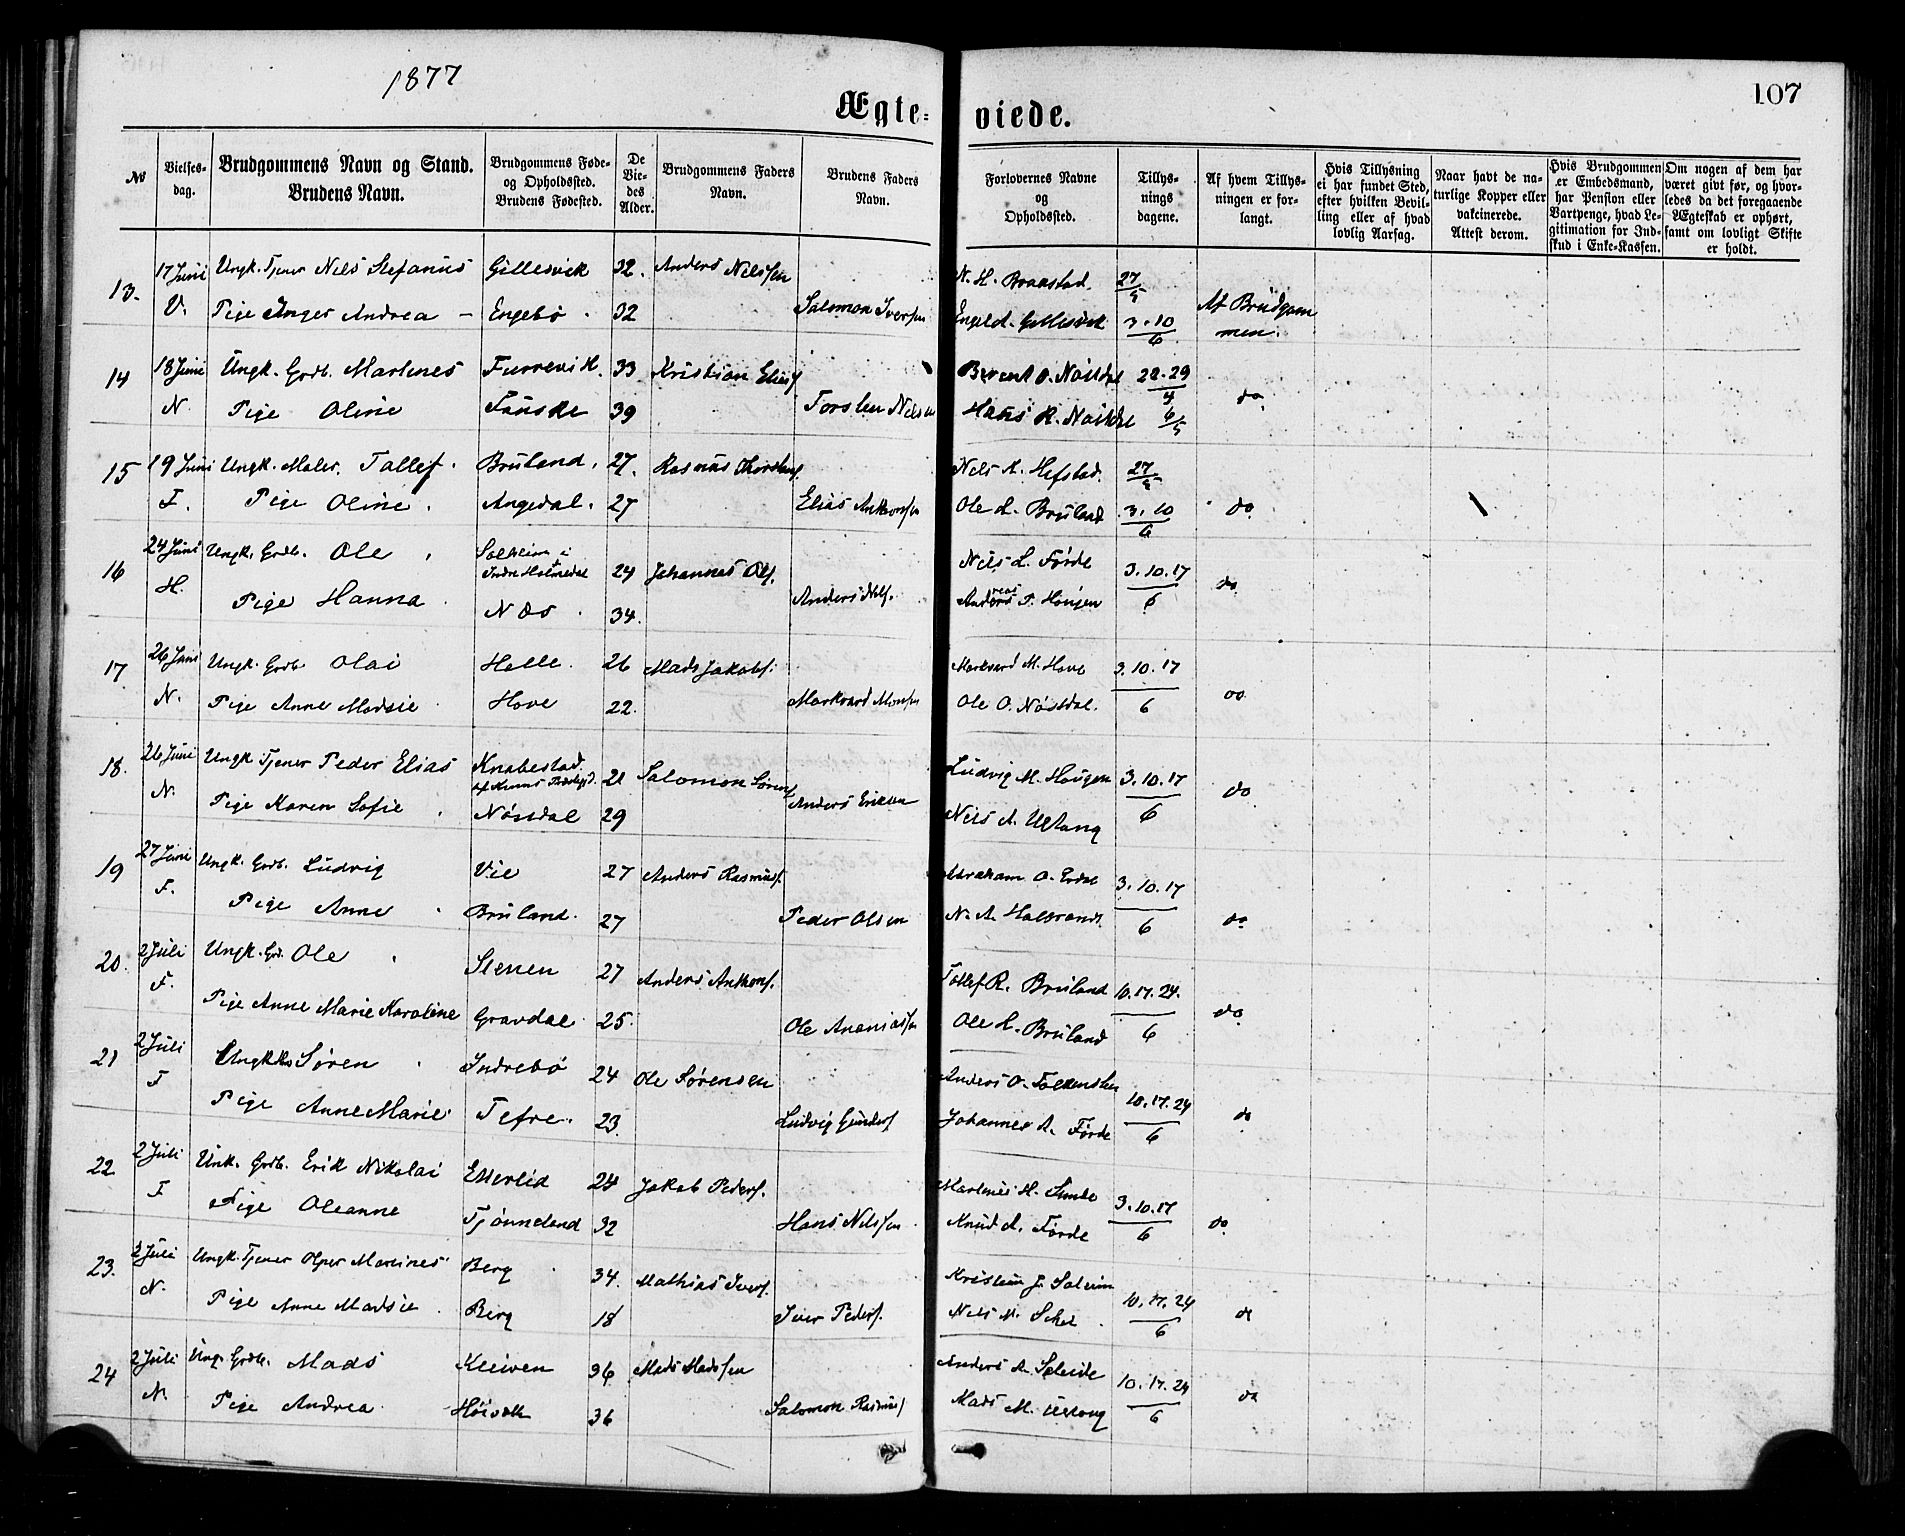 1877
107
Ægte-
viede.
No
Vielses-
dag.
Brudgommens Navn og Stand.
Brudens Navn.
Brudgommens Føde-
og Opholdssted.
Brudens Fødested.
De
Vie-
des
Alder.
Brudgommens Faders
Navn.
Brudens Faders
Navn.
Forlovernes Navne
og
Opholdssted.
Tillys-
nings
dagene.
Af hvem Tillys-
ningen er for-
langt.
Hvis Tillysning
ei har fundet Sted,
efter hvilken Bevil-
ling eller af hvad
lovlig Aarsag.
Naar havt de na-
turlige Kopper eller
vakcinerede.
Attest derom.
Hvis Brudgommen
er Embedsmand,
har Pension eller
Vartpenge, hvad Le-
gitimation for Ind-
skud i Enke-Kassen.
Om nogen af dem har
været givt før, og hvor-
ledes da det foregaaende
Ægteskab er ophørt,
samt om lovligt Skifte
er holdt.
13. 17 Juni Ungk. Tjener Nils Stefanus Gillesvik 32. Anders Nilssen N. H. Braastad. 27/5
V. Pige Inger Andrea - Engebø 32 Salomon Iversen Engebd. Gillesvik 3.10/6 Af Brudgom
men.
14 18 Juni Ungk. Grdb. Martines Furrevik. 33 Kristian Elias Berent O. Nøstdal 22.29/4
N. Pige Oline Fauske 39 Torsten Nilsen Hans R. Nøstdal 6/5 do
15 19 Juni Ungk. Maler. Tollef. Bruland. 27. Rasmus Thorstens. Nils A. Hefstad. 27/5
F. Pige Oline. Angedal. 27 Elias Anthonsen Ole L. Bruland 3.10/6 do
16 24 Juni Ungk. Grdb. Ole Solheim i
Indre Holmedal 24 Johannes Ols. Nils L. Førde 3.10.17/6 do
H. Pige Hanna Næs 34. Anders Nils. Anders P. Hougen
17 26 Juni Ungk. Grdb. Olai Helle. 26 Mads Jakobs. Markvard M. Hove 3.10.17
N. Pige Anne Madsie Hove 22. Markvard Monsen Ole O. Nøstdal. 6 do
18. 26 Juni Ungk. Tjener Peder Elias Knabestad.
af Kinns Præstegd. 21 Salomon Sørens. Ludvig M. Hougen 3.10.17
N. Pige Karen Sofie Nøstdal 29 Anders Eriksen Nils A. Ulltang 6 do
19 27 Juni Ungk. Grdb. Ludvig Vie 27 Anders Rasmus. Abraham O. Erdal 3.10.17
F. Pige Anne Bruland. 27 Peder Olsen N. A. Halbrand. 6 do
20. 2 Juli Ungk. Grd. Ole Stenen 27 Anders Anthons. Tollef R. Bruland 10.17.24.
F. Pige Anne Marie Karoline Gravdal 25. Ole Ananiassen Ole L. Bruland 6 do
21 2 Juli Ungk. Søren Indrebø 24 Ole Sørensen Anders O. 10.17.24
F Pige Anne Marie Tefre. 23. Ludvig Gunders. Johannes A. Førde 6 do
22 2 Juli Unk. Grdb. Erik Nikolai Esserlid 24 Jakob Peders. Martinus H. Sunde 3.10.17
F Pige Oleanne Tjønneland 32 Hans Nilssen Knud A. Førde 6 do
23. 2 Juli Ungk. Tjener Martines Berg 34. Mathias Ivers. Kristen J. Solheim 10.17.24
N. Pige Anne Madsie Berg 18 Iver Peders. Nils M. 6 do
24 2 Juli Ung. Grdb. Mads Kleiven 36 Mads Madssen Anders A. Soleide 10.17.24
N. Pige Andrea Høivik 36 Salomon Rasmus. Mads M. Ulltang 6 do